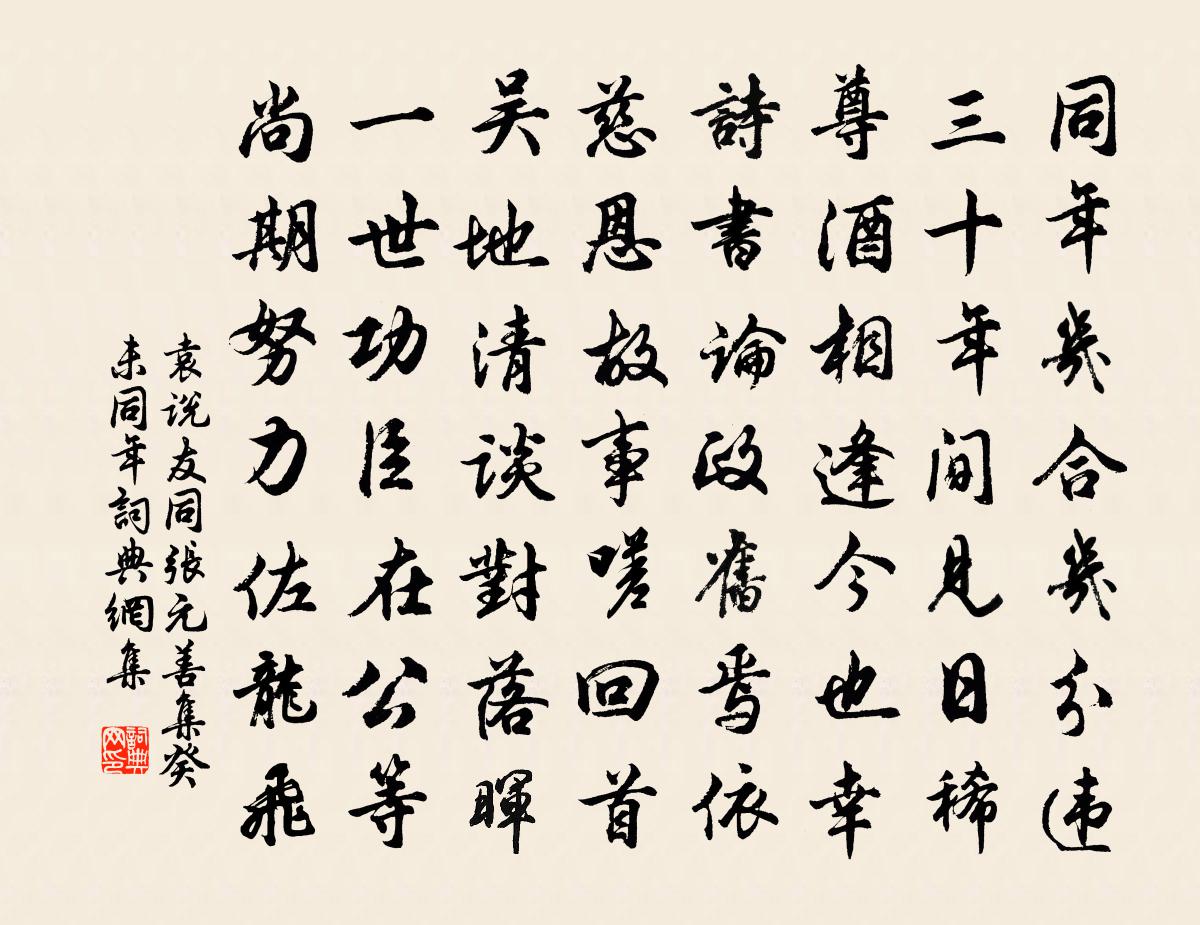 同年幾合幾分违
三十年間見日稀
尊酒相逢今也幸
詩書論政舊焉依
慈恩故事嗟回首
吴地清談對落暉
一世功臣在公等
尚期努力佐龍飛
袁说友同張元善集癸
未同年詞典網集
詞典
网印